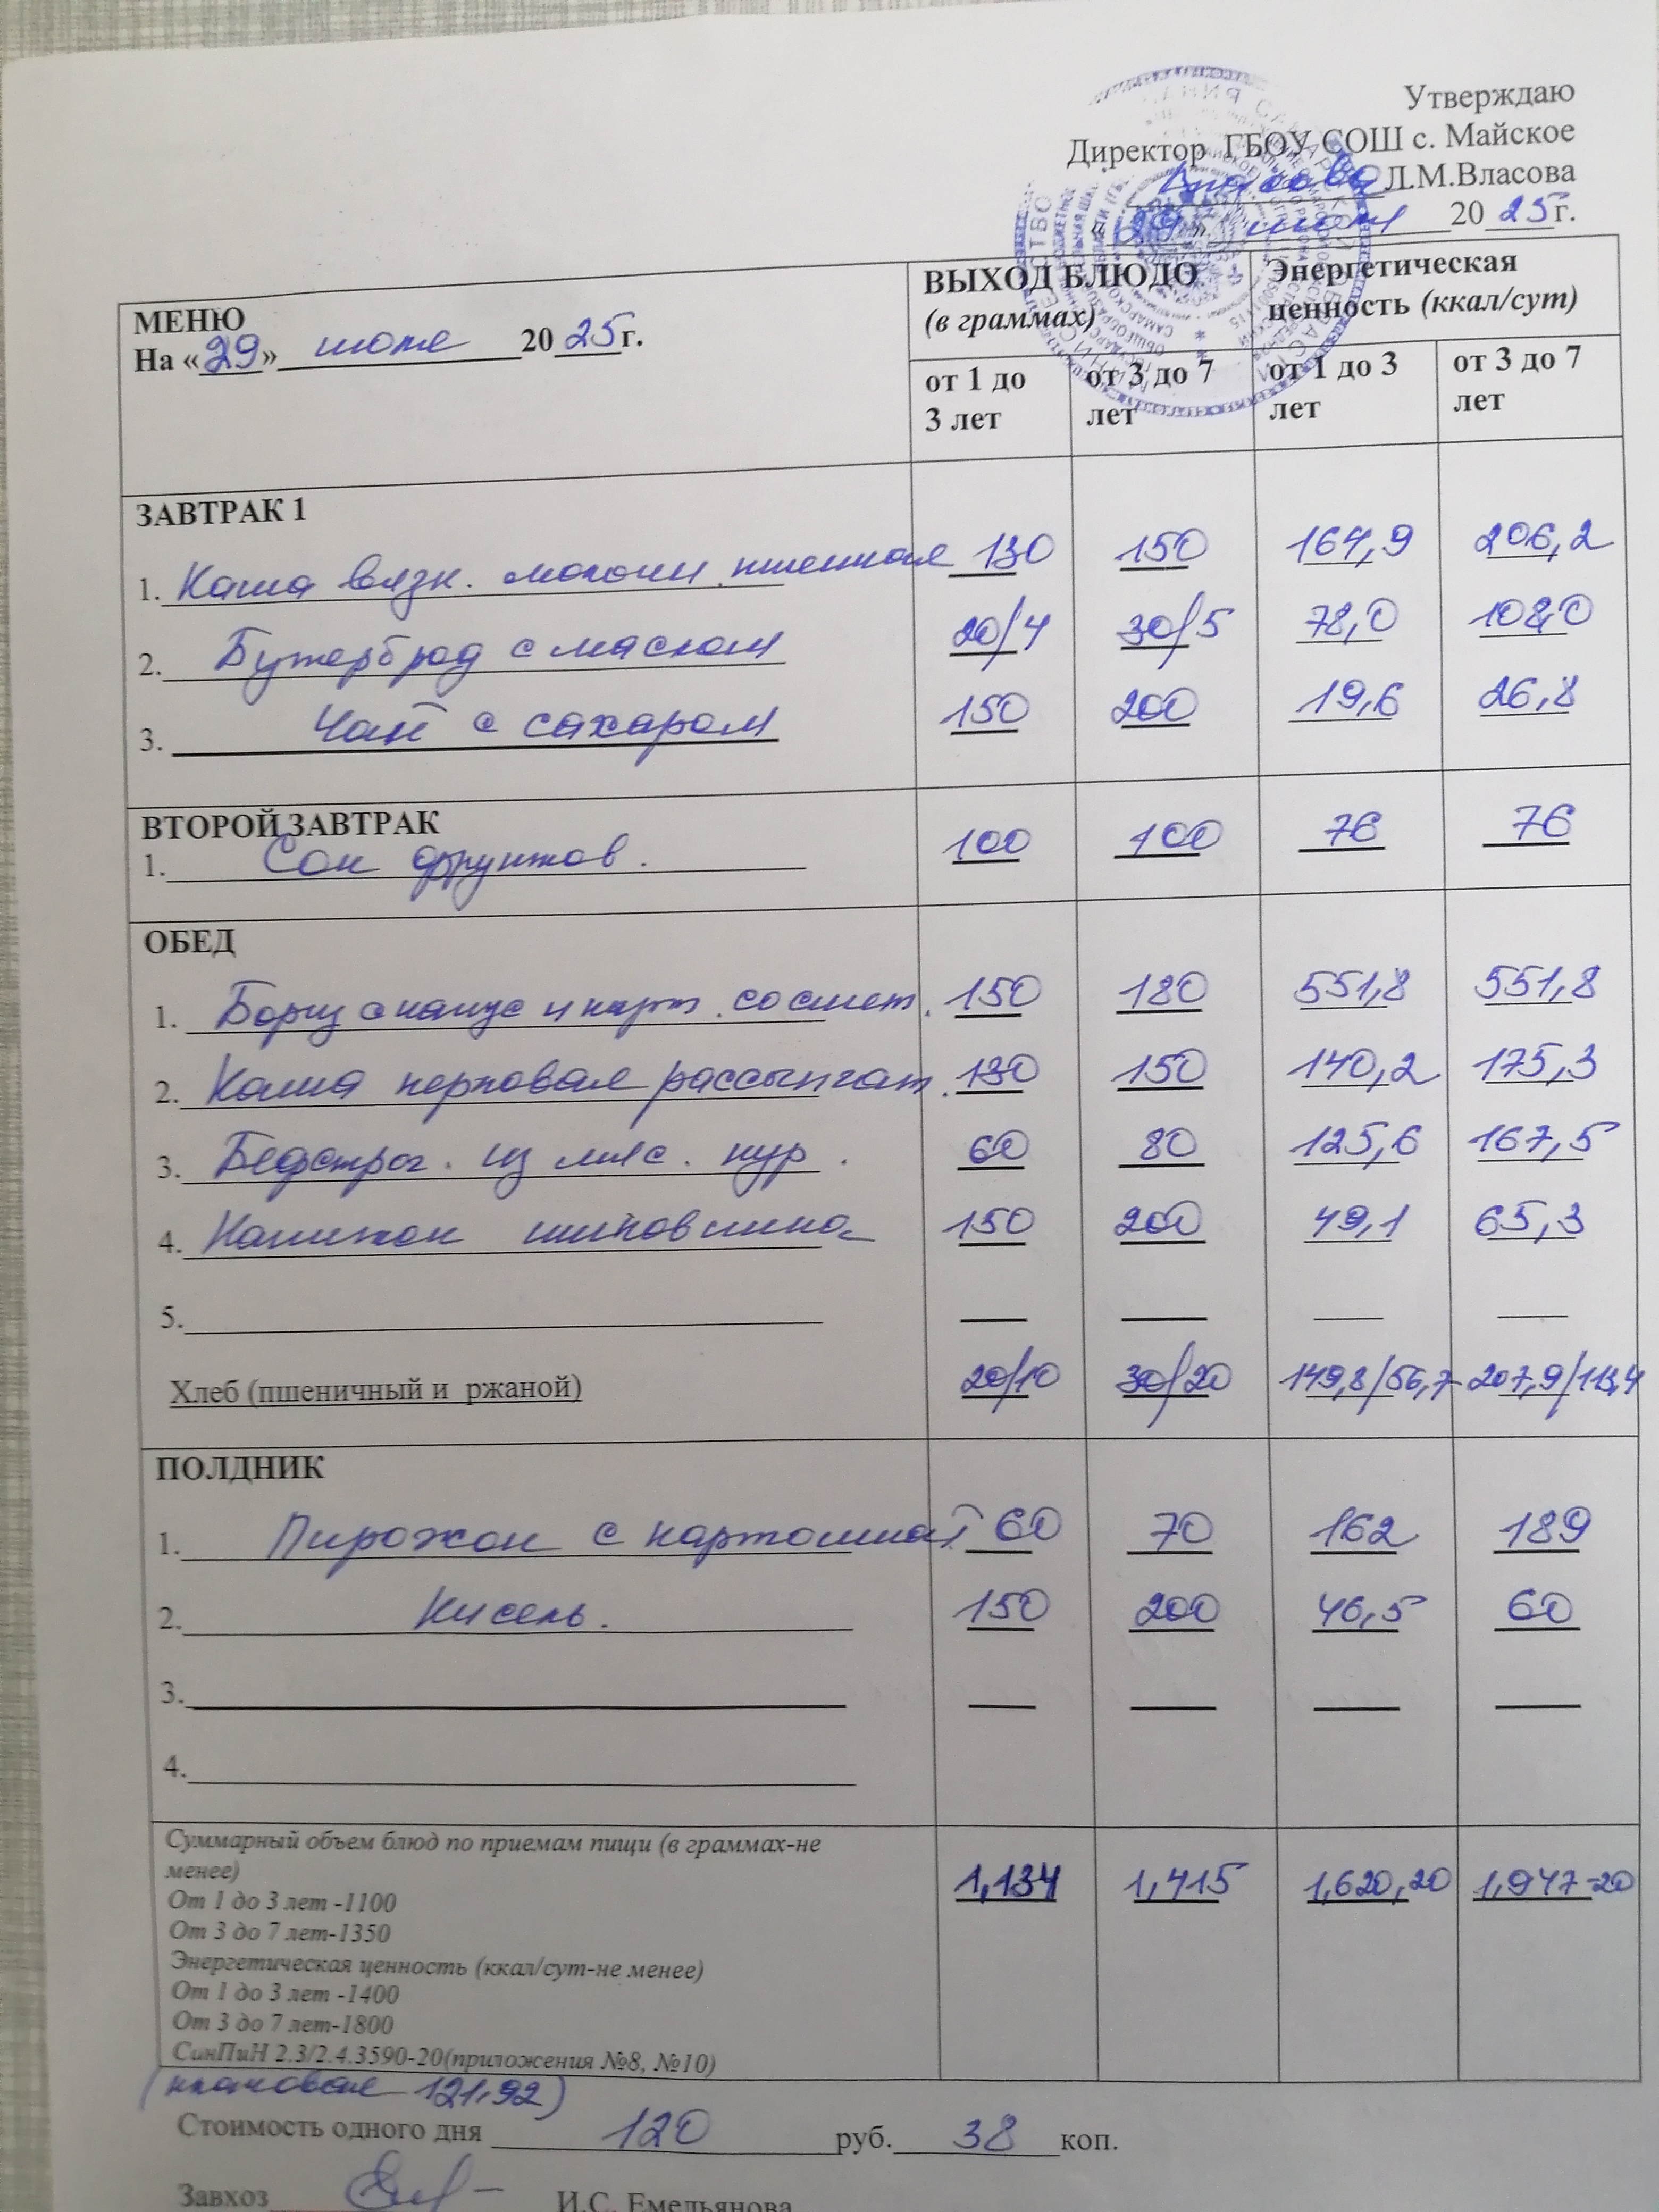 Утверждаю
Директор ГБОУ СОШ с. Майское
Л.М.Власова
«29» 20 25 г.
МЕНЮ
На «29» июля 20 25 г.
ВЫХОД БЛЮДО
(в граммах)
Энергетическая
ценность (ккал/сут)
от 1 до
3 лет
от 3 до 7
лет
от 1 до 3
лет
от 3 до 7
лет
ЗАВТРАК 1
1. Каша вязк. молочн. пшенная 130 150 164,9 206,2
2. Бутерброд с маслом 20/4 30/5 78,0 108,0
3. Чай с сахаром 150 200 19,6 26,8
ВТОРОЙ ЗАВТРАК
1. Сок фруктов. 100 100 76 76
ОБЕД
1. Борщ с капус и карт. со смет. 150 180 551,8 551,8
2. Каша перловая рассыпчат. 130 150 140,2 175,3
3. Бефстрог. из мяс. кур. 60 80 125,6 167,5
4. Напиток шиповника 150 200 49,1 65,3
5.
Хлеб (пшеничный и ржаной) 20/10 30/20 149,8/56,7 207,9/113,4
ПОЛДНИК
1. Пирожок с картошкой 60 70 162 189
2. Кисель. 150 200 46,5 60
3.
4.
Суммарный объем блюд по приемам пищи (в граммах-не
менее)
От 1 до 3 лет -1100
От 3 до 7 лет-1350
Энергетическая ценность (ккал/сут-не менее)
От 1 до 3 лет -1400
От 3 до 7 лет-1800
СанПиН 2.3/2.4.3590-20(приложения №8, №10)
1,134 1,415 1,620,20 1,947-20
(плановая 121,92)
Стоимость одного дня 120 руб. 38 коп.
Завхоз И.С. Емельянова